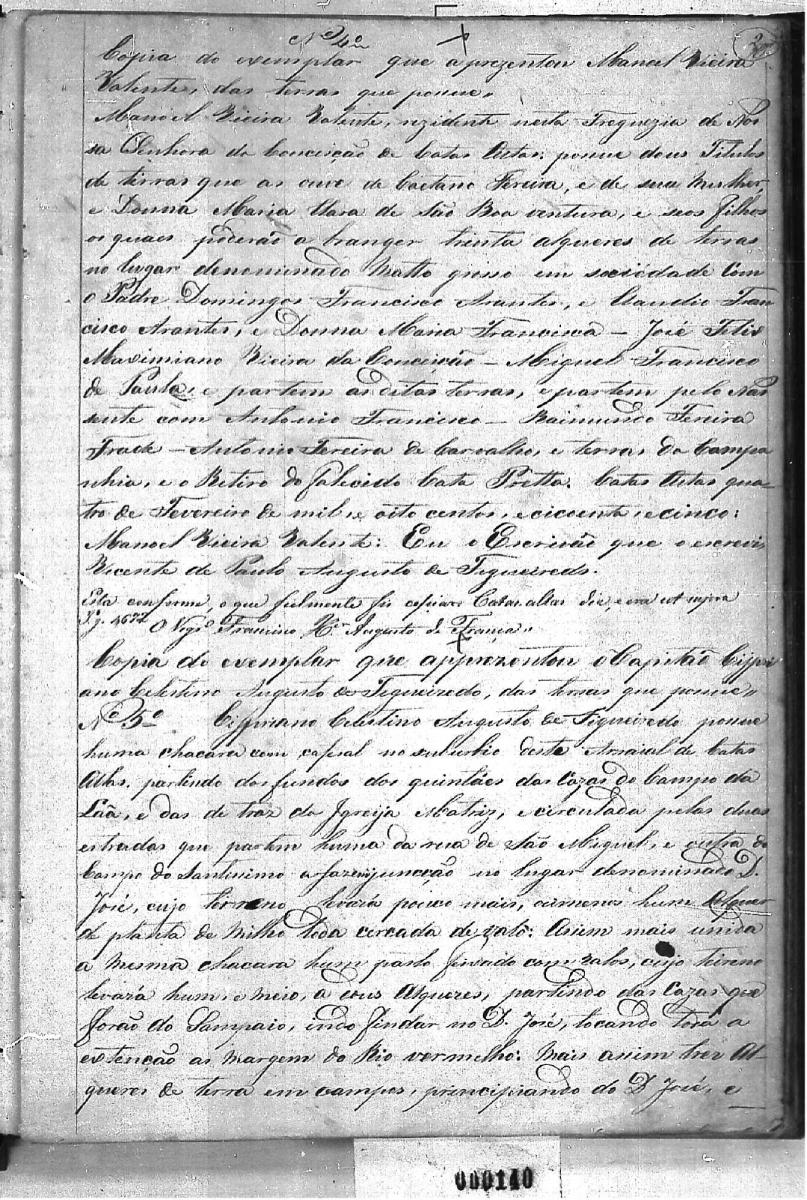 Nº 4º
2
Copia do exemplar que aprezentou Manoel Vieira
Valente, das terras que possue.
Manoel Vieira Valente, rezidente nesta Freguezia de Nos
sa Senhora da Conceição de Catas Altas: possue dous Titulos
de terras que as ouve de Caetano Fereira, e de sua Mulher,
e Donna Maria Clara de São Boa ventura, e seos filhos
os quaes poderão abranger trinta alqueres de terras
no lugar denominado Matto grosso em sociedade com
o Padre Domingos Francisco Arantes, e Claudio Fran
cisco Arantes, e Donna Maria Francisca - José Felix
Maximiano Vieira da Conceição - Miguel Francisco
de Paula, e partem as ditas terras, e partem pelo Nas
sente com Antonio Francisco - Raimundo Fereira
Frade - Antonio Fereira de Carvalho, e terras da Compa
nhia, e o Retiro do falecido Cata Pretta. Catas Altas qua-
tro de Fevereiro de mil, e oito centos, e cicoenta, e cinco:
Manoel Vieira Valente: Eu o Escrivão que o escrevi,
Vicente de Paulo Augusto de Figueiredo.
Esta conforme, o que fielmente fis copiar. Catas altas die, e era ut supra
O Vigrº Francisco Xer Augusto de França
Copia do exemplar que apprezentou o Capitão Cippri
ano Celestino Augusto de Figueiredo, das terras que possue,
Nº 5º Cippriano Celestino Augusto de Figueiredo possue
huma chacara com capial no suburbio deste Arraial de Catas
Altas, partindo dos fundos dos quintães das Cazas do Campo da
Lãa, e das de traz da Igreija Matriz, e circulada pelas duas
estradas que partem huma da rua de São Miguel, e outra do
Campo do Santissimo a fazer juncção no lugar denominado D.
José, cujo terreno levará pouco mais, ou menos hum Alquer
de planta de milho toda cercada de valo: Assim mais unida
a mesma chacara hum pasto fexado com valos, cujo tereno
levará hum e meio, a dous Alqueres, partindo das Cazas que
forão do Sampaio, indo findar no D. José, tocando toda a
extenção as margem do Rio vermelho: Mais assim trez Al-
queres de terra em campos, principiando do D. José, e
000140